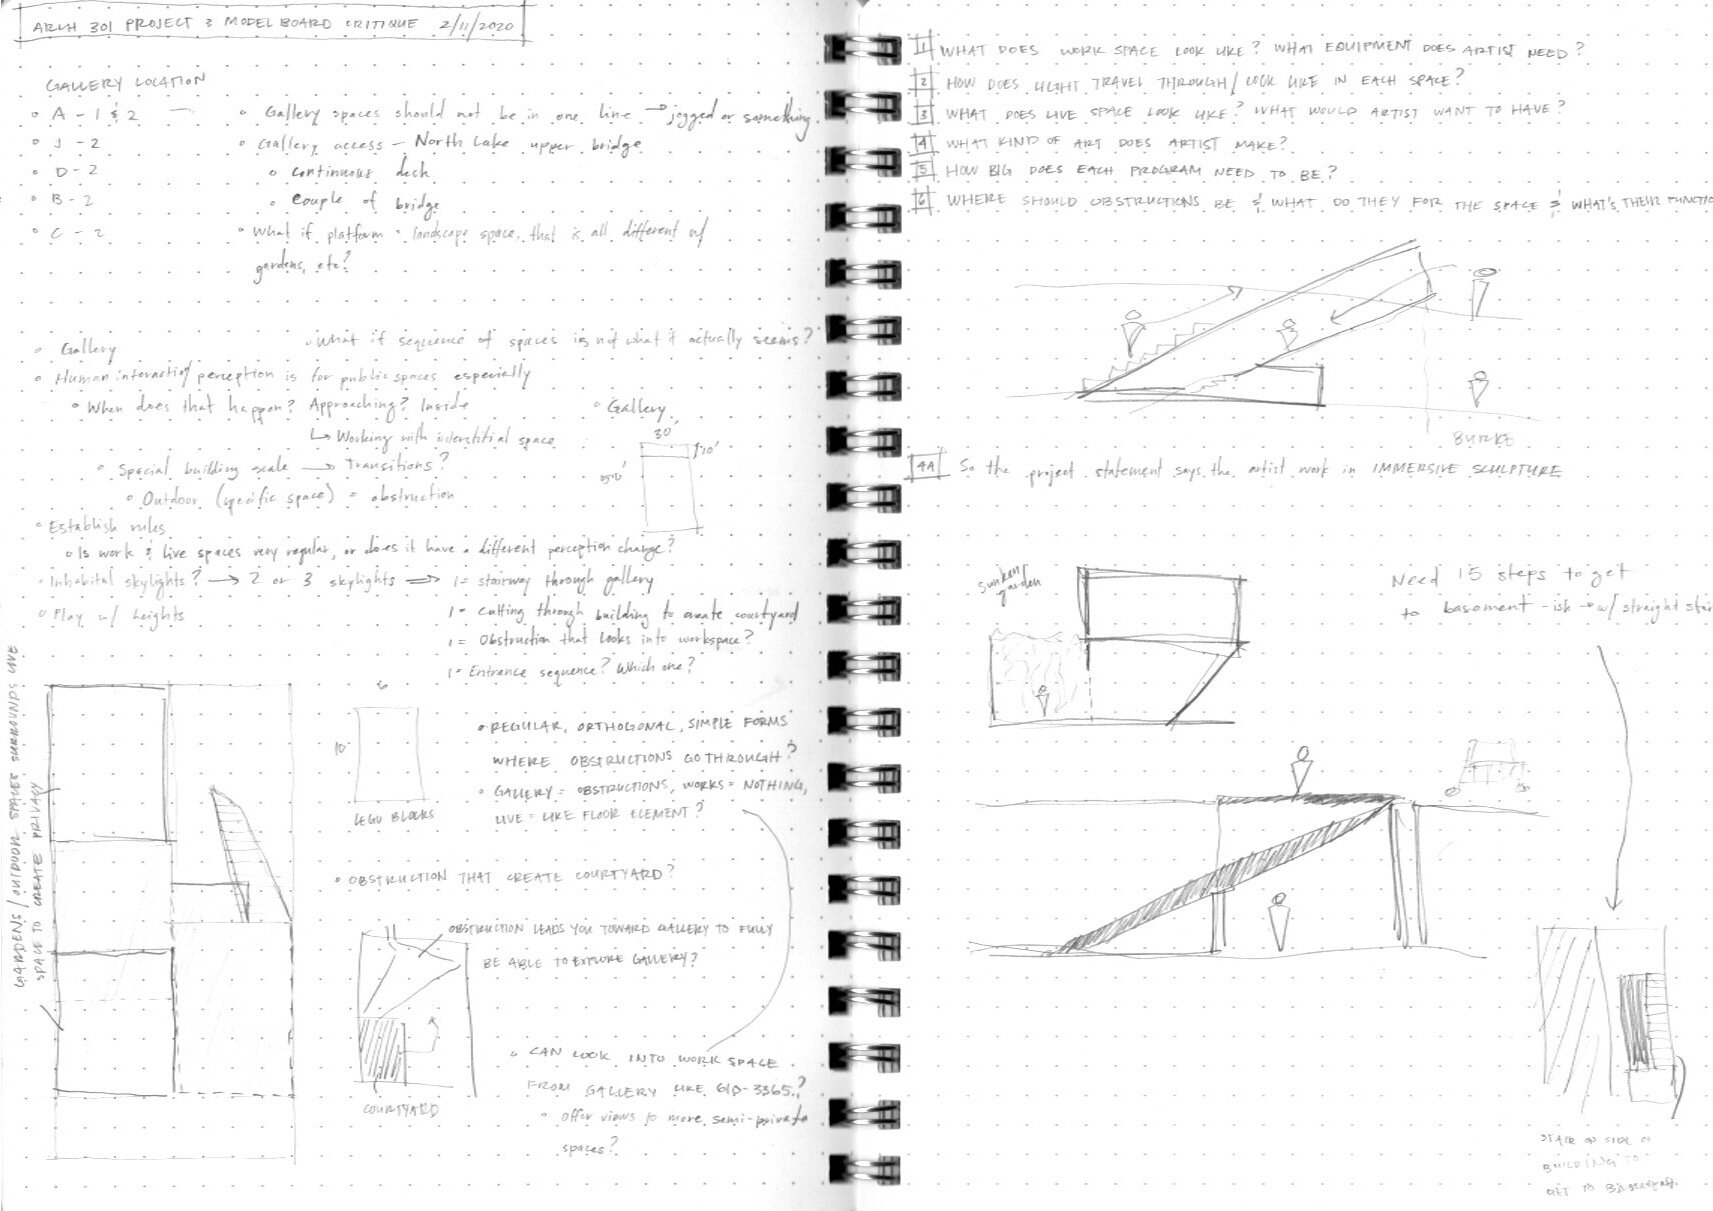 ARCH 301 PROJECT 3 MODEL BOARD CRITIQUE 2/11/2020
GALLERY LOCATION
A - 1 & 2
J - 2
D - 2
B - 2
C - 2
Gallery spaces should not be in one line → jogged or something
Gallery access - North Lake upper bridge
continuous deck
couple of bridge
What if platform = landscape space, that is all different w/
gardens, etc?
Gallery
What if sequence of spaces is not what it actually seems?
Human interaction/perception is for public spaces especially
When does that happen? Approaching? Inside
↳ Working with interstitial space
Spacial building scale → Transitions?
Outdoor (specific space) = obstruction
Gallery
30'
10'
50'
Establish rules
Is work & live spaces very regular, or does it have a different perception change?
Inhabital skylights? → 2 or 3 skylights ⇒ 1 = stairway through gallery
1 = cutting through building to create courtyard
1 = Obstruction that looks into workspace?
1 = Entrance sequence? Which one?
Play w/ heights
GARDENS/OUTDOOR SPACES SURROUNDS LIVE
SPACE TO CREATE PRIVACY
6
10
LEGO BLOCKS
REGULAR, ORTHOGONAL, SIMPLE FORMS
WHERE OBSTRUCTIONS GO THROUGH?
GALLERY = OBSTRUCTIONS, WORKS = NOTHING,
LIVE = LIKE FLOOR ELEMENT?
OBSTRUCTION THAT CREATE COURTYARD?
OBSTRUCTION LEADS YOU TOWARD GALLERY TO FULLY
BE ABLE TO EXPLORE GALLERY?
COURTYARD
CAN LOOK INTO WORK SPACE
FROM GALLERY LIKE GID-3365?
offer views to more semi-private
spaces?
1 WHAT DOES WORK SPACE LOOK LIKE? WHAT EQUIPMENT DOES ARTIST NEED?
2 HOW DOES LIGHT TRAVEL THROUGH/LOOK LIKE IN EACH SPACE?
3 WHAT DOES LIVE SPACE LOOK LIKE? WHAT WOULD ARTIST WANT TO HAVE?
4 WHAT KIND OF ART DOES ARTIST MAKE?
5 HOW BIG DOES EACH PROGRAM NEED TO BE?
6 WHERE SHOULD OBSTRUCTIONS BE & WHAT DO THEY FOR THE SPACE & WHAT'S THEIR FUNCTIO
BURKE
4A So the project statement says the artist work in IMMERSIVE SCULPTURE
sunken
garden
Need 15 steps to get
to basement -ish → w/ straight stair
STAIR ON SIDE OF
BUILDING TO
GET TO BASEMENT